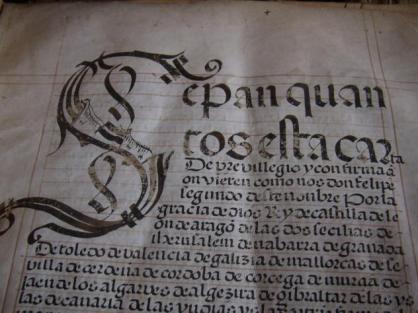 Sepan quan
tos esta carta
De previllegio y confirmaçi
on vieren como nos don felipe
segundo deste nonbre Por la
graçia de dios Rey de castilla de le
on de aragon de las dos seçilias de
iherusalem de nabarra de granada
De toledo de valençia de galizia de mallorcas de se
villa de çerdeña de cordoba de corçega de murçia de
jaen de los algarves de algezira de gibraltar de las ys
las de canaria de las yndias yslas